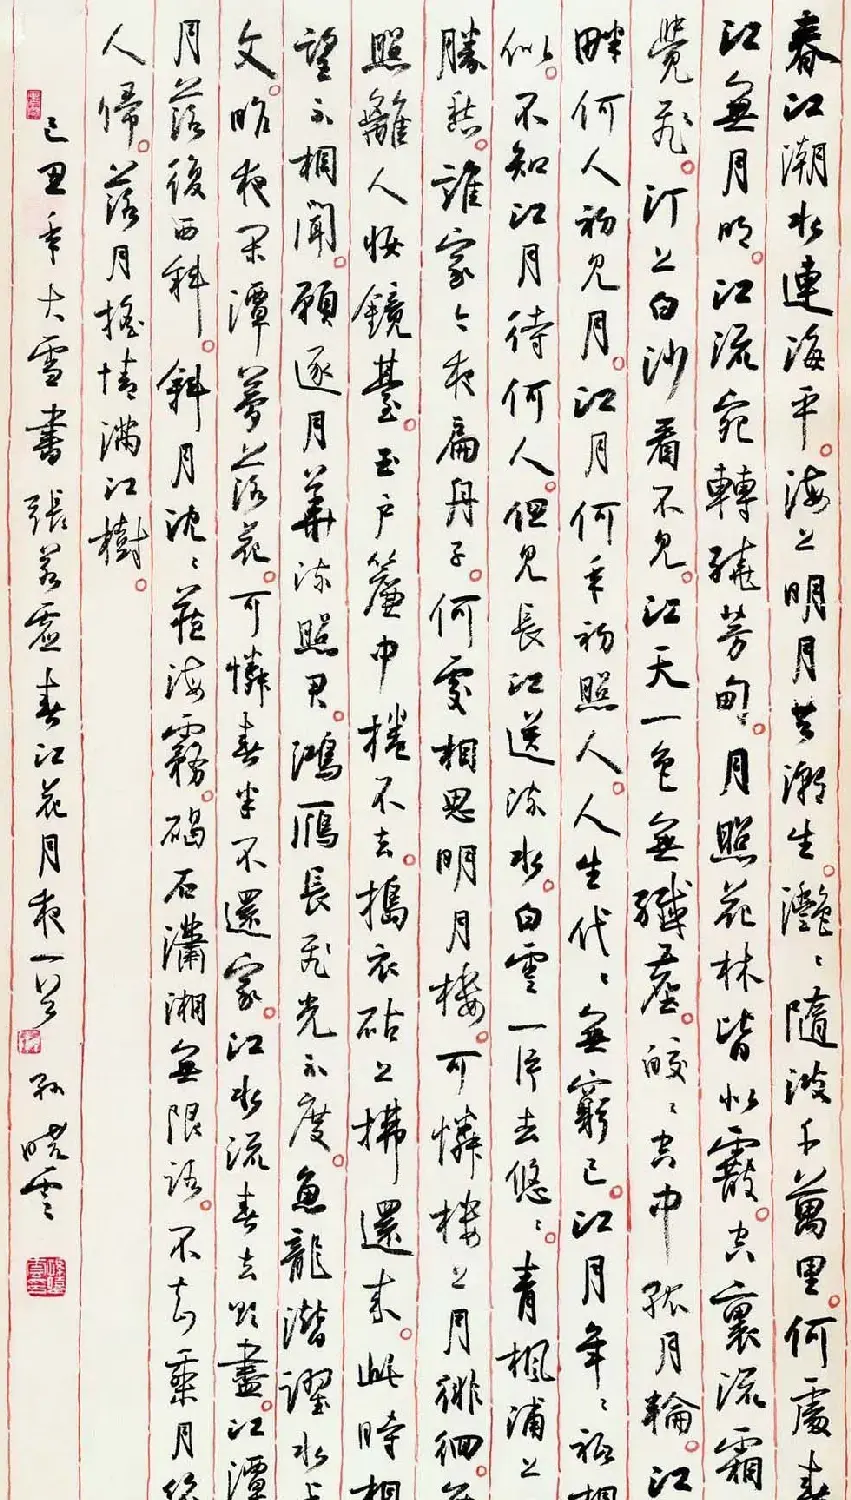 春江潮水連海平。海上明月共潮生。灩〻隨波千萬里。何處春
江無月明。江流宛轉繞芳甸。月照花林皆似霰。空裏流霜
覺飛。汀上白沙看不見。江天一色無纖塵。皎〻空中孤月輪。江
畔何人初見月。江月何年初照人。人生代〻無窮已。江月年〻祗相
似。不知江月待何人。但見長江送流水。白雲一片去悠〻。青楓浦上
勝愁。誰家今夜扁舟子。何處相思明月樓。可憐樓上月徘徊。
照離人妝鏡臺。玉戶簾中捲不去。搗衣砧上拂還來。此時相
望不相聞。願逐月華流照君。鴻鴈長飛光不度。魚龍潛躍水
文。昨夜閑潭夢落花。可憐春半不還家。江水流春去欲盡。江潭
月落復西斜。斜月沈〻藏海霧。碣石瀟湘無限路。不知乘月幾
人歸。落月搖情滿江樹。
己丑年大雪書張若虛春江花月夜一首 孫曉雲